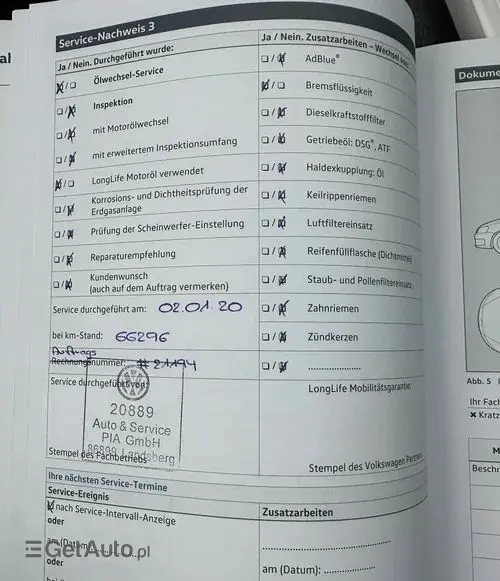 al
Service-Nachweis 3
Ja / Nein. Durchgeführt wurde:
Ölwechsel-Service
Inspektion
mit Motorölwechsel
mit erweitertem Inspektionsumfang
LongLife Motoröl verwendet
Korrosions- und Dichtheitsprüfung der
Erdgasanlage
Prüfung der Scheinwerfer-Einstellung
Reparaturempfehlung
Kundenwunsch
(auch auf dem Auftrag vermerken)
Service durchgeführt am: 02.01.20
bei km-Stand: 66296
Auftrags
Rechnungsnummer: #21194
Service durchgeführt von:
20889
Auto & Service
PIA GmbH
86899 Landsberg
Stempel des Fachbetriebs
Ja / Nein. Zusatzarbeiten – Wechsel von:
AdBlue®
Bremsflüssigkeit
Dieselkraftstofffilter
Getriebeöl: DSG®, ATF
Haldexkupplung: Öl
Keilrippenriemen
Luftfiltereinsatz
Reifenfüllflasche (Dichtmittel)
Staub- und Pollenfiltereinsatz
Zahnriemen
Zündkerzen
LongLife Mobilitätsgarantie:
Stempel des Volkswagen Partners
Ihre nächsten Service-Termine
Service-Ereignis
nach Service-Intervall-Anzeige
oder
am (Datum):
oder
Zusatzarbeiten
am (Datum):
Dokume
Abb. 5
Ihr Fach
✖ Kratz
M
Beschre
GetAuto.pl